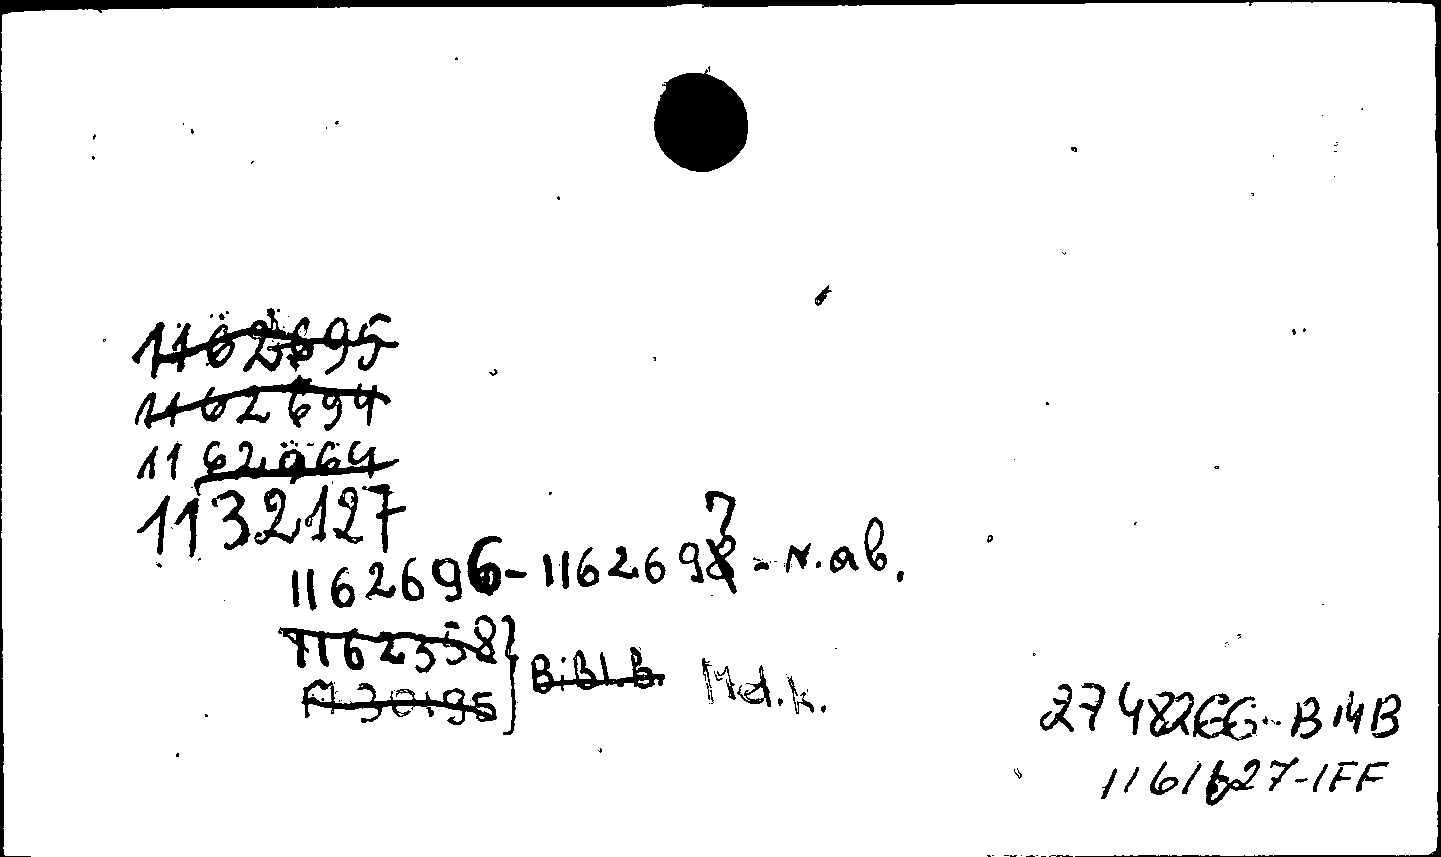 1162695
1162694
1162964
1132127
1162696-1162697 - N.ab.
1162358
Bibl.b. Med.k.
2748266-B14B
1161627-IFF